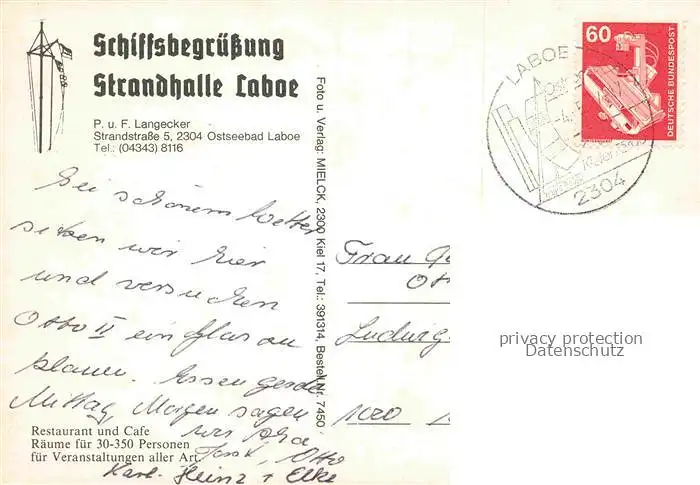 Schiffsbegrüßung
Strandhalle Laboe
P. u. F. Langecker
Strandstraße 5, 2304 Ostseebad Laboe
Tel.: (04343) 8116
Bei schönem Wetter
sitzen wir hier
und versuchen
Otto II ein
planen. Essen gerade
Mittag, Morgen sagen
wir
Otto
Karl-Heinz + Elke
Restaurant und Cafe
Räume für 30-350 Personen
für Veranstaltungen aller Art.
Foto u. Verlag: MIELCK, 2300 Kiel 17, Tel.: 391314, Bestell.Nr. 7450
60
DEUTSCHE BUNDESPOST
LABOE
2304
Frau
Ludwig
1000
privacy protection
Datenschutz